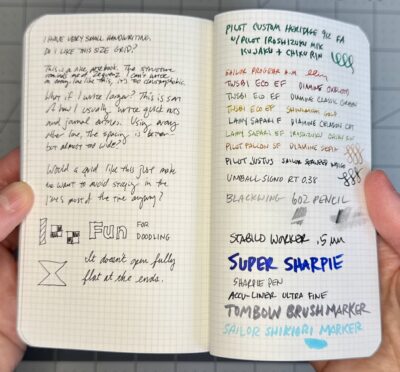 I HAVE VERY SMALL HANDWRITING.
DO I LIKE THIS SIZE GRID?
This is a nice notebook. The structure
reminds me of I can't write
in array line like this, it's too claustrophobic.
What if I write larger? This is sort
of how I usually write quick notes
and journal entries. Using every
other line, the spacing is better—
but almost too wide?
Would a grid like this just make
me want to avoid staying in the
lines most of the time anyway?
Fun FOR
DOODLING
It doesn't open fully
flat at the ends.
PILOT CUSTOM HERITAGE 912 FA
W/ PILOT IROSHIZUKU MIX
KUJAKU + CHIKURIN
SAILOR PROGEAR
TWSBI ECO EF DIAMINE
TWSBI ECO EF DIAMINE CLASSIC GREEN
TWSBI ECO EF
LAMY SAFARI EF DIAMINE
LAMY SAFARI EF IROSHIZUKU
PILOT FALCON SF DIAMINE SEPIA
PILOT JUSTUS SAILOR
UNIBALL SIGNO RT 0.38
BLACKWING 602 PENCIL
STABILO WORKER .5 mm
SUPER SHARPIE
SHARPIE PEN
ACCU-LINER ULTRA FINE
TOMBOW BRUSH MARKER
SAILOR SHIKIORI MARKER